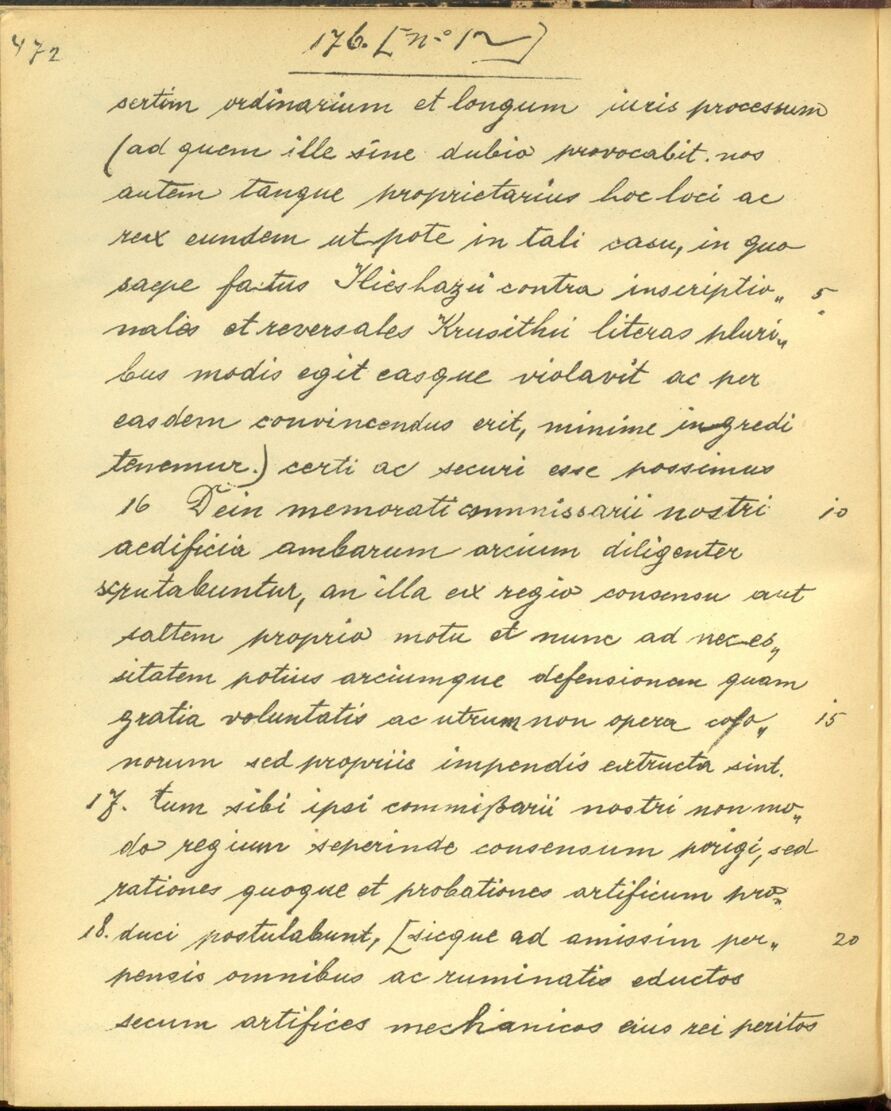 472
176. [no 12]
sertim ordinarium et longum iuris processum
(ad quem ille sine dubio provocabit. nos
autem tanque proprietarius hoc loci ac
rex eundem utpote in tali casu, in quo
saepe fatus Illieshazii contra inscriptio„ 5
nales et reversales Krusithii literas pluri„
bus modis egit easque violavit ac per
easdem convincendus erit, minime ingredi
tenemur.) certi ac securi esse possimus
16 Dein memorati commissarii nostri 10
aedificia ambarum arcium diligenter
scrutabuntur, an illa ex regio consensu aut
saltem proprio motu et nunc ad neces„
sitatem potius arciumque defensionem quam
gratia voluntatis ac utrum non opera colo„ 15
norum sed propriis impendis extructa sint.
17. tum sibi ipsi commißarii nostri non mo„
do regium seperinde consensum porigi, sed
rationes quoque et probationes artificum pro„
18. duci postulabunt, [sicque ad amissim per„ 20
pensis omnibus ac ruminatis eductos
secum artifices mechanicos eius rei peritos